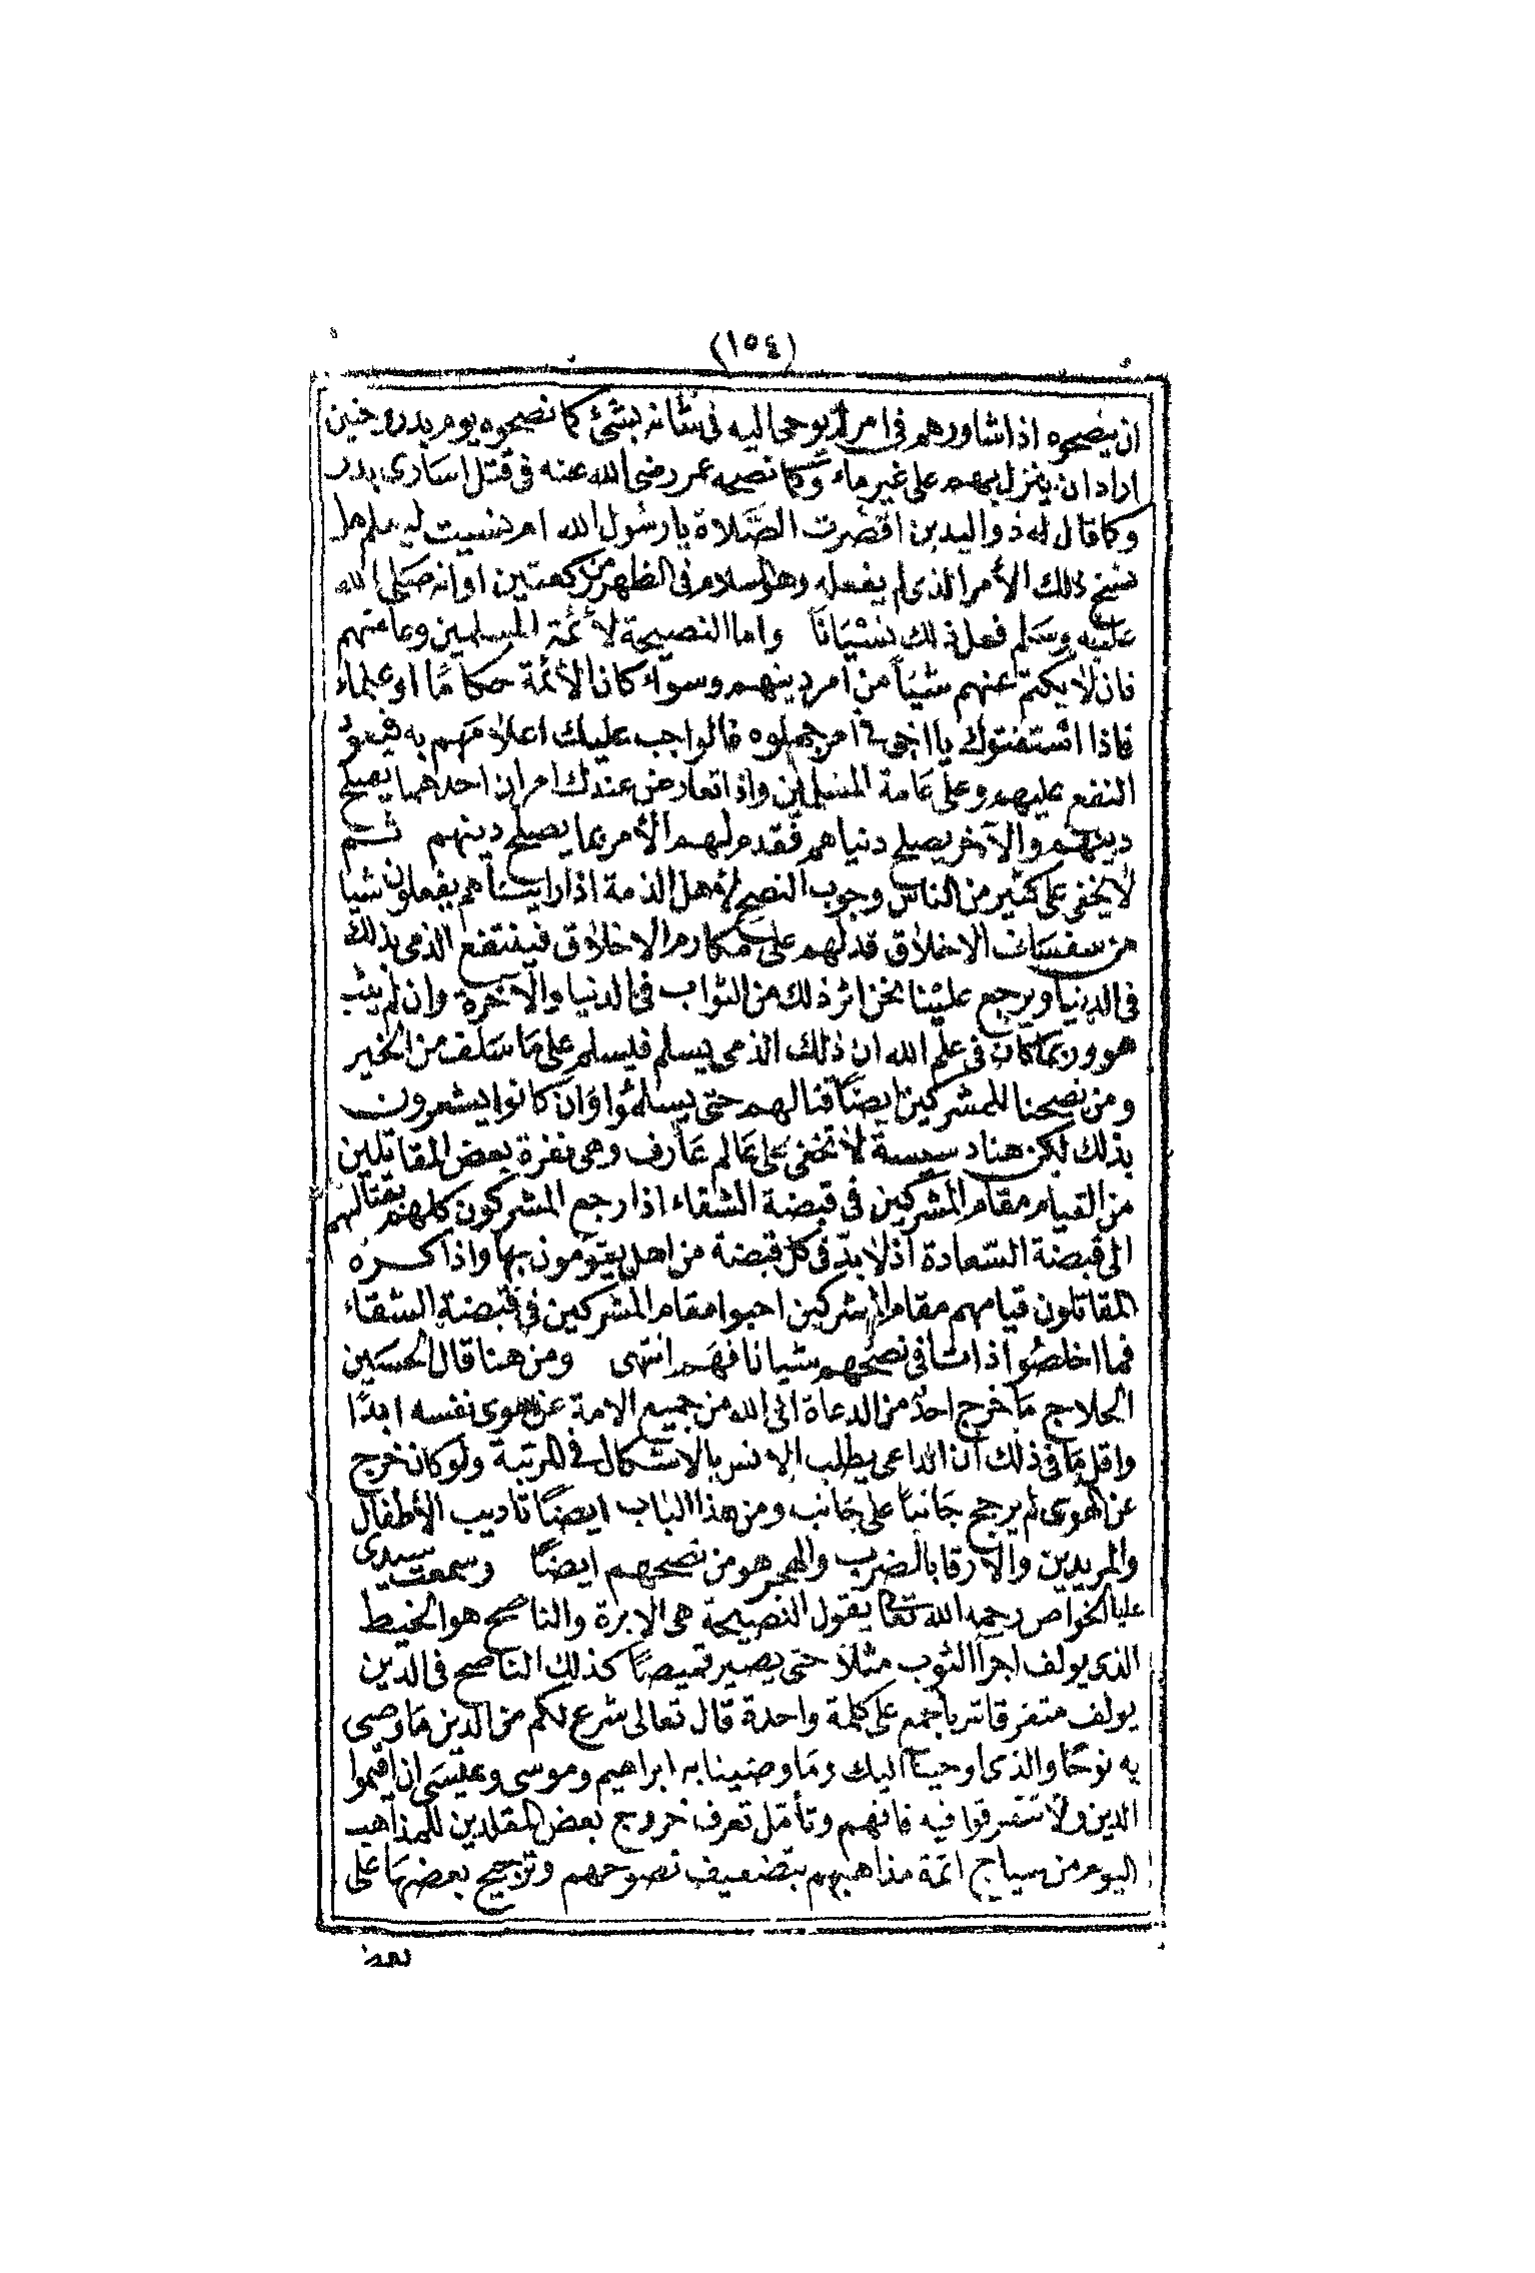 (١٥٤)
ان ينصحوه اذا شاورهم فى امر لم يوحى اليه فى شأنه بشئ كما نصحوه يوم بدر حين
اراد ان ينزل بهم على غير ماء وكما نصحه عمر رضى الله عنه فى قتل اسارى بدر
وكما قال له ذو اليدين اقصرت الصلاة يا رسول الله ام نسيت ليعلم هل
نسخ ذلك الأمر الذى لم يفعله وهو السلام فى الظهر من ركعتين او انه صلى الله
عليه وسلم فعل ذلك نسيانا واما النصيحة لأئمة المسلمين وعامتهم
فان لا يكتم عنهم شيأ من امر دينهم وسواء كان الأئمة حكامًا او علماء
فاذا استفتوك يا اخى فى امر جهلوه فالواجب عليك اعلامهم به فيعود
النفع عليهم وعلى عامة المسلمين واذا تعارض عندك امران احدهما يصلح
دينهم والآخر يصلح دنياهم فقدم لهم الأمر بما يصلح دينهم ثم
لا يخفى على كثير من الناس وجوب النصح لأهل الذمة اذا رايناهم يفعلون شيأ
من سفساف الاخلاق فدلهم على مكارم الاخلاق فينتفع الذمى بذلك
فى الدنيا ويرجع علينا نحن اثر ذلك من الثواب فى الدنيا والآخرة وان لم يثب
هو وربما كان فى علم الله ان ذلك الذمى يسلم فيسلم على ما سلف من الخير
ومن نصحنا للمشركين ايضًا قتالهم حتى يسلموا وان كانوا يشعرون
بذلك لكن هنا دسيسة لا تخفى على عالم عارف وهى نفرة بعض المقاتلين
من القيام مقام المشركين فى قبضة الشقاء اذا رجع المشركون كلهم بقتالهم
الى قبضة السعادة اذ لا بد فى كل قبضة من اهل يقومون بها واذا كره
المقاتلون قيامهم مقام المشركين احبوا مقام المشركين فى قبضة الشقاء
فما اخلصوا اذا فى نصحهم فافهم انتهى ومن هنا قال الحسين
الحلاج ما خرج احد من الدعاة الى الله من جميع الامة عن هوى نفسه ابدًا
واقل ما فى ذلك ان الداعى يطلب الانس بالاشكال فى المرتبة ولو كان خرج
عن الهوى لم يرجح جانبا على جانب ومن هذا الباب ايضًا تاديب الأطفال
والمريدين والارقا بالضرب والهجر هو من نصحهم ايضًا وسمعت سيدى
عليا الخواص رحمه الله تعالى يقول النصيحة هى الابرة والناصح هو الخيط
الذى يولف اجزأ الثوب مثلا حتى يصير قميصًا كذلك الناصح فى الدين
يولف متفرقاته باجمع على كلمة واحدة قال تعالى شرع لكم من الدين ما وصى
به نوحًا والذى اوحينا اليك وما وصينا به ابراهيم وموسى وعيسى ان اقيموا
الدين ولا تتفرقوا فيه فافهم وتأمل تعرف خروج بعض المقلدين للمذاهب
اليوم من سياج ائمة مذاهبهم بتضعيف نصوصهم وترجيح بعضها على
بعض